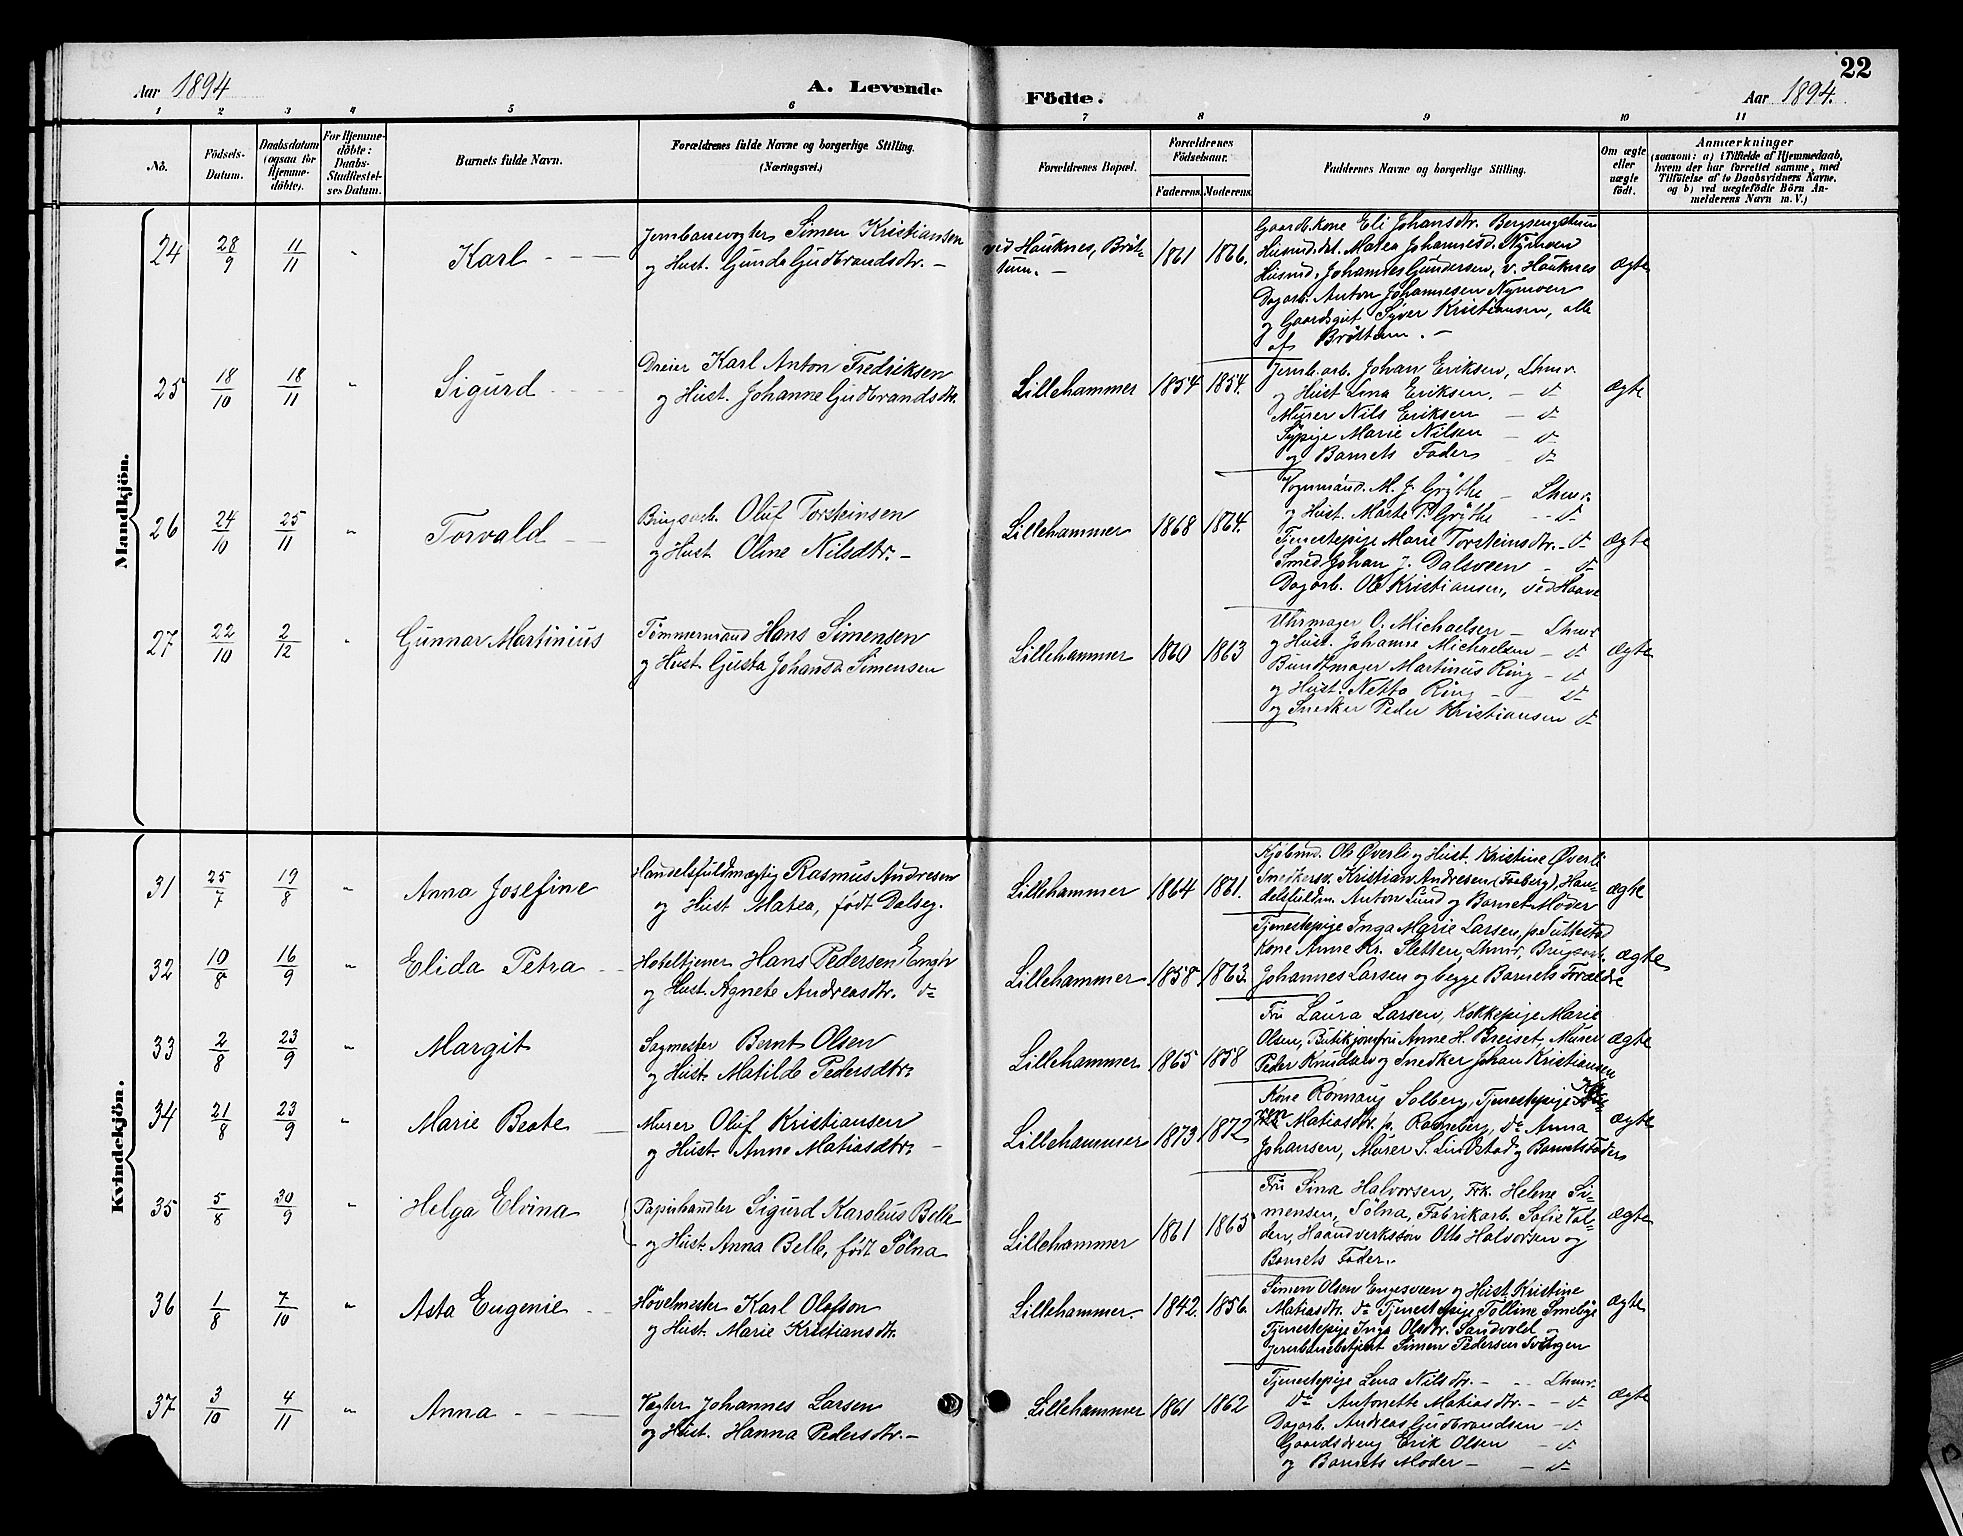 22
Aar 1894
A. Levende Födte.
Aar 1894.
1 2 3 4 5 6 7 8 9 10 11
No.
Födsels-
Datum.
Daabsdatum
(ogsaa for
Hjemme-
döbte).
For Hjemme-
döbte:
Daabs-
Stadfæstel-
ses Datum.
Barnets fulde Navn.
Forældrenes fulde Navne og borgerlige Stilling.
(Næringsvei.)
Forældrenes Bopæl.
Forældrenes
Födselsaar.
Faderens. Moderens.
Faddernes Navne og borgerlige Stilling.
Om ægte
eller
uægte
födt.
Anmærkninger
(saasom: a) i Tilfælde af Hjemmedaab,
hvem der har forrettet samme, med
Tilföielse af to Daabsvidners Navne,
og b) ved uægtefödte Börn An-
melderens Navn m. V.)
Mandkjön.
24 28/9 11/11 " Karl
Jernbanevogter Simen Kristiansen
og Hust. Gunda Gudbrandsdtr.
ved Hauknes, Bröt-
tum.
1861 1866.
Gaardb.kone Eli Johansdtr. Bergsengstuen
Husmd.dat. Matea Johannesd. Nymoen
Husmd. Johannes Gundersen, v. Hauknes
Dagarb. Anton Johannesen Nymoen
og Gaardsgut Syver Kristiansen, alle
af Bröttum.
ægte
25 18/10 18/11 " Sigurd
Dreier Karl Anton Fredriksen
og Hust. Johanne Gudbrandsdtr.
Lillehammer 1854 1854.
Jernb.arb. Johan Eriksen, Lhmr.
og Hust Lina Eriksen, d-
Murer Nils Eriksen - d-
Sypige Marie Nilsen - d-
og Barnets Fader d-
ægte
26 24/10 25/11 " Torvald
Brugsarb. Oluf Torsteinsen
og Hust. Oline Nilsdtr.
Lillehammer 1868 1864.
Vognmand. M. J. Gröthe - Lhmr.
og Hust. Marte P. Gröthe - d-
Tjenestepige Marie Torsteinsdtr. - d-
Smed Johan J. Dalsveen - d-
Dagarb. Ole Kristiansen, ved Haave
ægte
27 22/10 2/12 " Gunnar Martinius
Tömmermand Hans Simensen
og Hust. Gusta Johansd. Simensen
Lillehammer 1860 1863
Uhrmager O. Michaelsen - Lhmr.
og Hust. Johanne Michaelsen - d-
Bundtmager Martinus Ring - d-
og Hust. Netta Ring - d-
og Snedker Peder Kristiansen d-
ægte
Kvindekjön.
31 25/7 19/8 " Anna Josefine
Handelsfuldmægtig Rasmus Andresen
og Hust Matea, født Dalseg.
Lillehammer 1864 1861.
Kjöbmd. Ole Øverli og Hust. Kristine Øverli
Snedkersv. Kristian Andresen (Faaberg), Han-
delsfuldm. Anton Lund og Barnets Moder
ægte
32 10/8 16/9 " Elida Petra
Hoteltjener Hans Pedersen Engh
og Hust. Agnete Andreasdtr. d-
Lillehammer 1858 1863.
Tjenestepige Inga Marie Larsen, p. Suttestad
Kone Anne Kr. Sletten, Lhmr., Brugsarb.
Johannes Larsen og begge Barnets Forældre
ægte
33 2/8 23/9 " Margit
Sagmester Bernt Olsen
og Hust. Matilde Pedersdtr.
Lillehammer 1865 1858
Fru Laura Larsen, Kokkepige Marie
Olsen, Butikjomfru Anne H. Breiset, Murer
Peder Knudsen og Snedker Johan Kristiansen
ægte
34 21/8 23/9 " Marie Beate
Murer Oluf Kristiansen
og Hust. Anne Matiasdtr.
Lillehammer 1873 1872
Kone Rönnaug Solberg, Tjenestepige
Matiasdtr. p. Rogneberg, do Anna
Johansen, Murer S. Lindstad og Barnets Fader
ægte
35 5/8 30/9 " Helga Elvina
Papirhandler Sigurd Karolius Belle
og Hust. Anna Belle, født Sölna
Lillehammer 1861 1865
Fru Sina Halvorsen, Frk. Helene Si-
mensen, Sölna, Fabrikarb. Sofie Val-
den, Haandverkssön Otto Halvorsen og
Barnets Fader.
ægte
36 1/8 7/10 " Asta Eugenie
Hövelmester Karl Olafson
og Hust. Marie Kristiansdtr.
Lillehammer. 1842. 1856.
Simen Olsen Engesveen og Hust. Kristine
Matiasdtr. do Tjenestepige Tolline Smebye
Tjenestepige Inga Olsdtr. Sandvold
Jernbanebetjent Simen Pedersen Svingen
ægte
37 3/10 4/11 " Anna
Vogter Johannes Larsen
og Hust. Hanna Pedersdtr.
Lillehammer 1861 1862
Tjenestepige Lena Nilsdtr. - Lhmr.
do Antonette Matiasdtr. - d-
Dagarb. Andreas Gudbrandsen - d-
Gaardsdreng Erik Olsen - d-
og Barnets Moder - d-
ægte